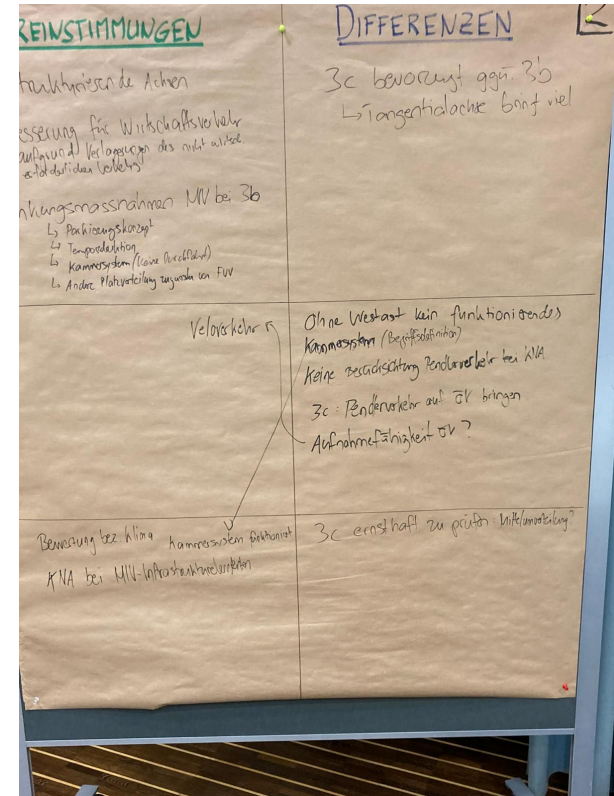 REINSTIMMUNGEN
strukturierende Achsen
esserung für Wirtschaftsverkehr
aufgrund Verlagerungen des nicht
erforderlichen Verkehrs
nkungsmassnahmen MIV bei 3b
↳ Parkierungskonzept
↳ Temporeduktion
↳ Kammersystem (keine Durchfahrt)
↳ Andere Platzverteilung zugunsten von FVV
Veloverkehr
Bewertung bez. Klima
Kammersystem funktioniert
KNA bei MIV-Infrastrukturelementen
DIFFERENZEN
3c bevorzugt ggü. 3b
↳ Tangentialachse bringt viel
Ohne Westast kein funktionierendes
Kammersystem (Begriffsdefinition)
Keine Berücksichtigung Pendlerverkehr bei KNA
3c: Pendlerverkehr auf ÖV bringen
Aufnahmefähigkeit ÖV?
3c ernsthaft zu prüfen Mittelumverteilung?